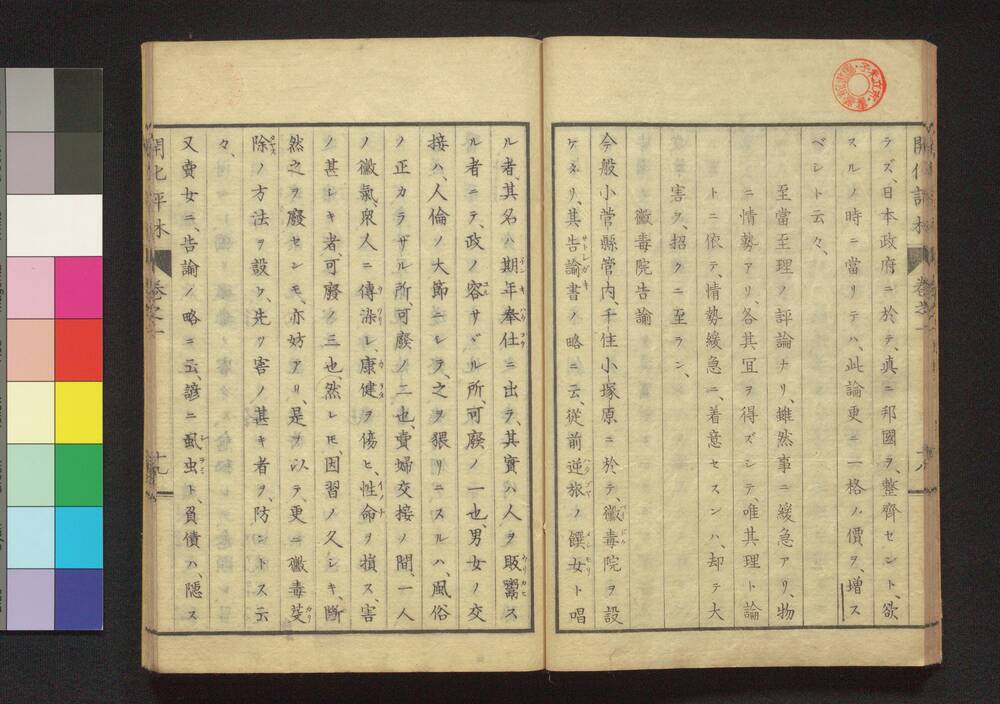 ラズ、日本政府ニ於テ、真ニ邦國ヲ、整齊セント、欲
スルノ時ニ當リテハ、此論更ニ一格ノ價ヲ、增ス
ベシト云々、
至當至理ノ評論ナリ、雖然事ニ緩急アリ、物
ニ情勢アリ、各其宜ヲ得ズシテ、唯其理ト論
トニ依テ、情勢緩急ニ、着意セスンハ、却テ大
害ヲ、招クニ至ラン、
黴毒院告諭
今般小菅縣管内、千住小塚原ニ於テ、黴毒院ヲ設
ケタリ、其告諭書ノ略ニ云、從前逆旅ノ饌女ト唱
ル者、其名ハ期年奉仕ニ出ラ、其實ハ人ヲ販鬻ス
ル者ニテ、政ノ容サヾル所、可廢ノ一也、男女ノ交
接ハ、人倫ノ大節ニシテ、之ヲ猥リニスルハ、風俗
ノ正カラザル所、可廢ノ二也、賣婦交接ノ間、一人
ノ黴氣、衆人ニ傳染シ、康健ヲ傷ヒ、性命ヲ損ス、害
ノ甚シキ者、可廢ノ三也、然レモ、因習ノ久シキ、斷
然之ヲ廢センモ、亦妨アリ、是ヲ以テ、更ニ黴毒芟
除ノ方法ヲ設ケ、先ツ害ノ甚キ者ヲ、防ントス云
々、
又賣女ニ、告諭ノ略ニ云、諺ニ虱虫ト、負債ハ、隱ス
開化評林 卷之一 十九